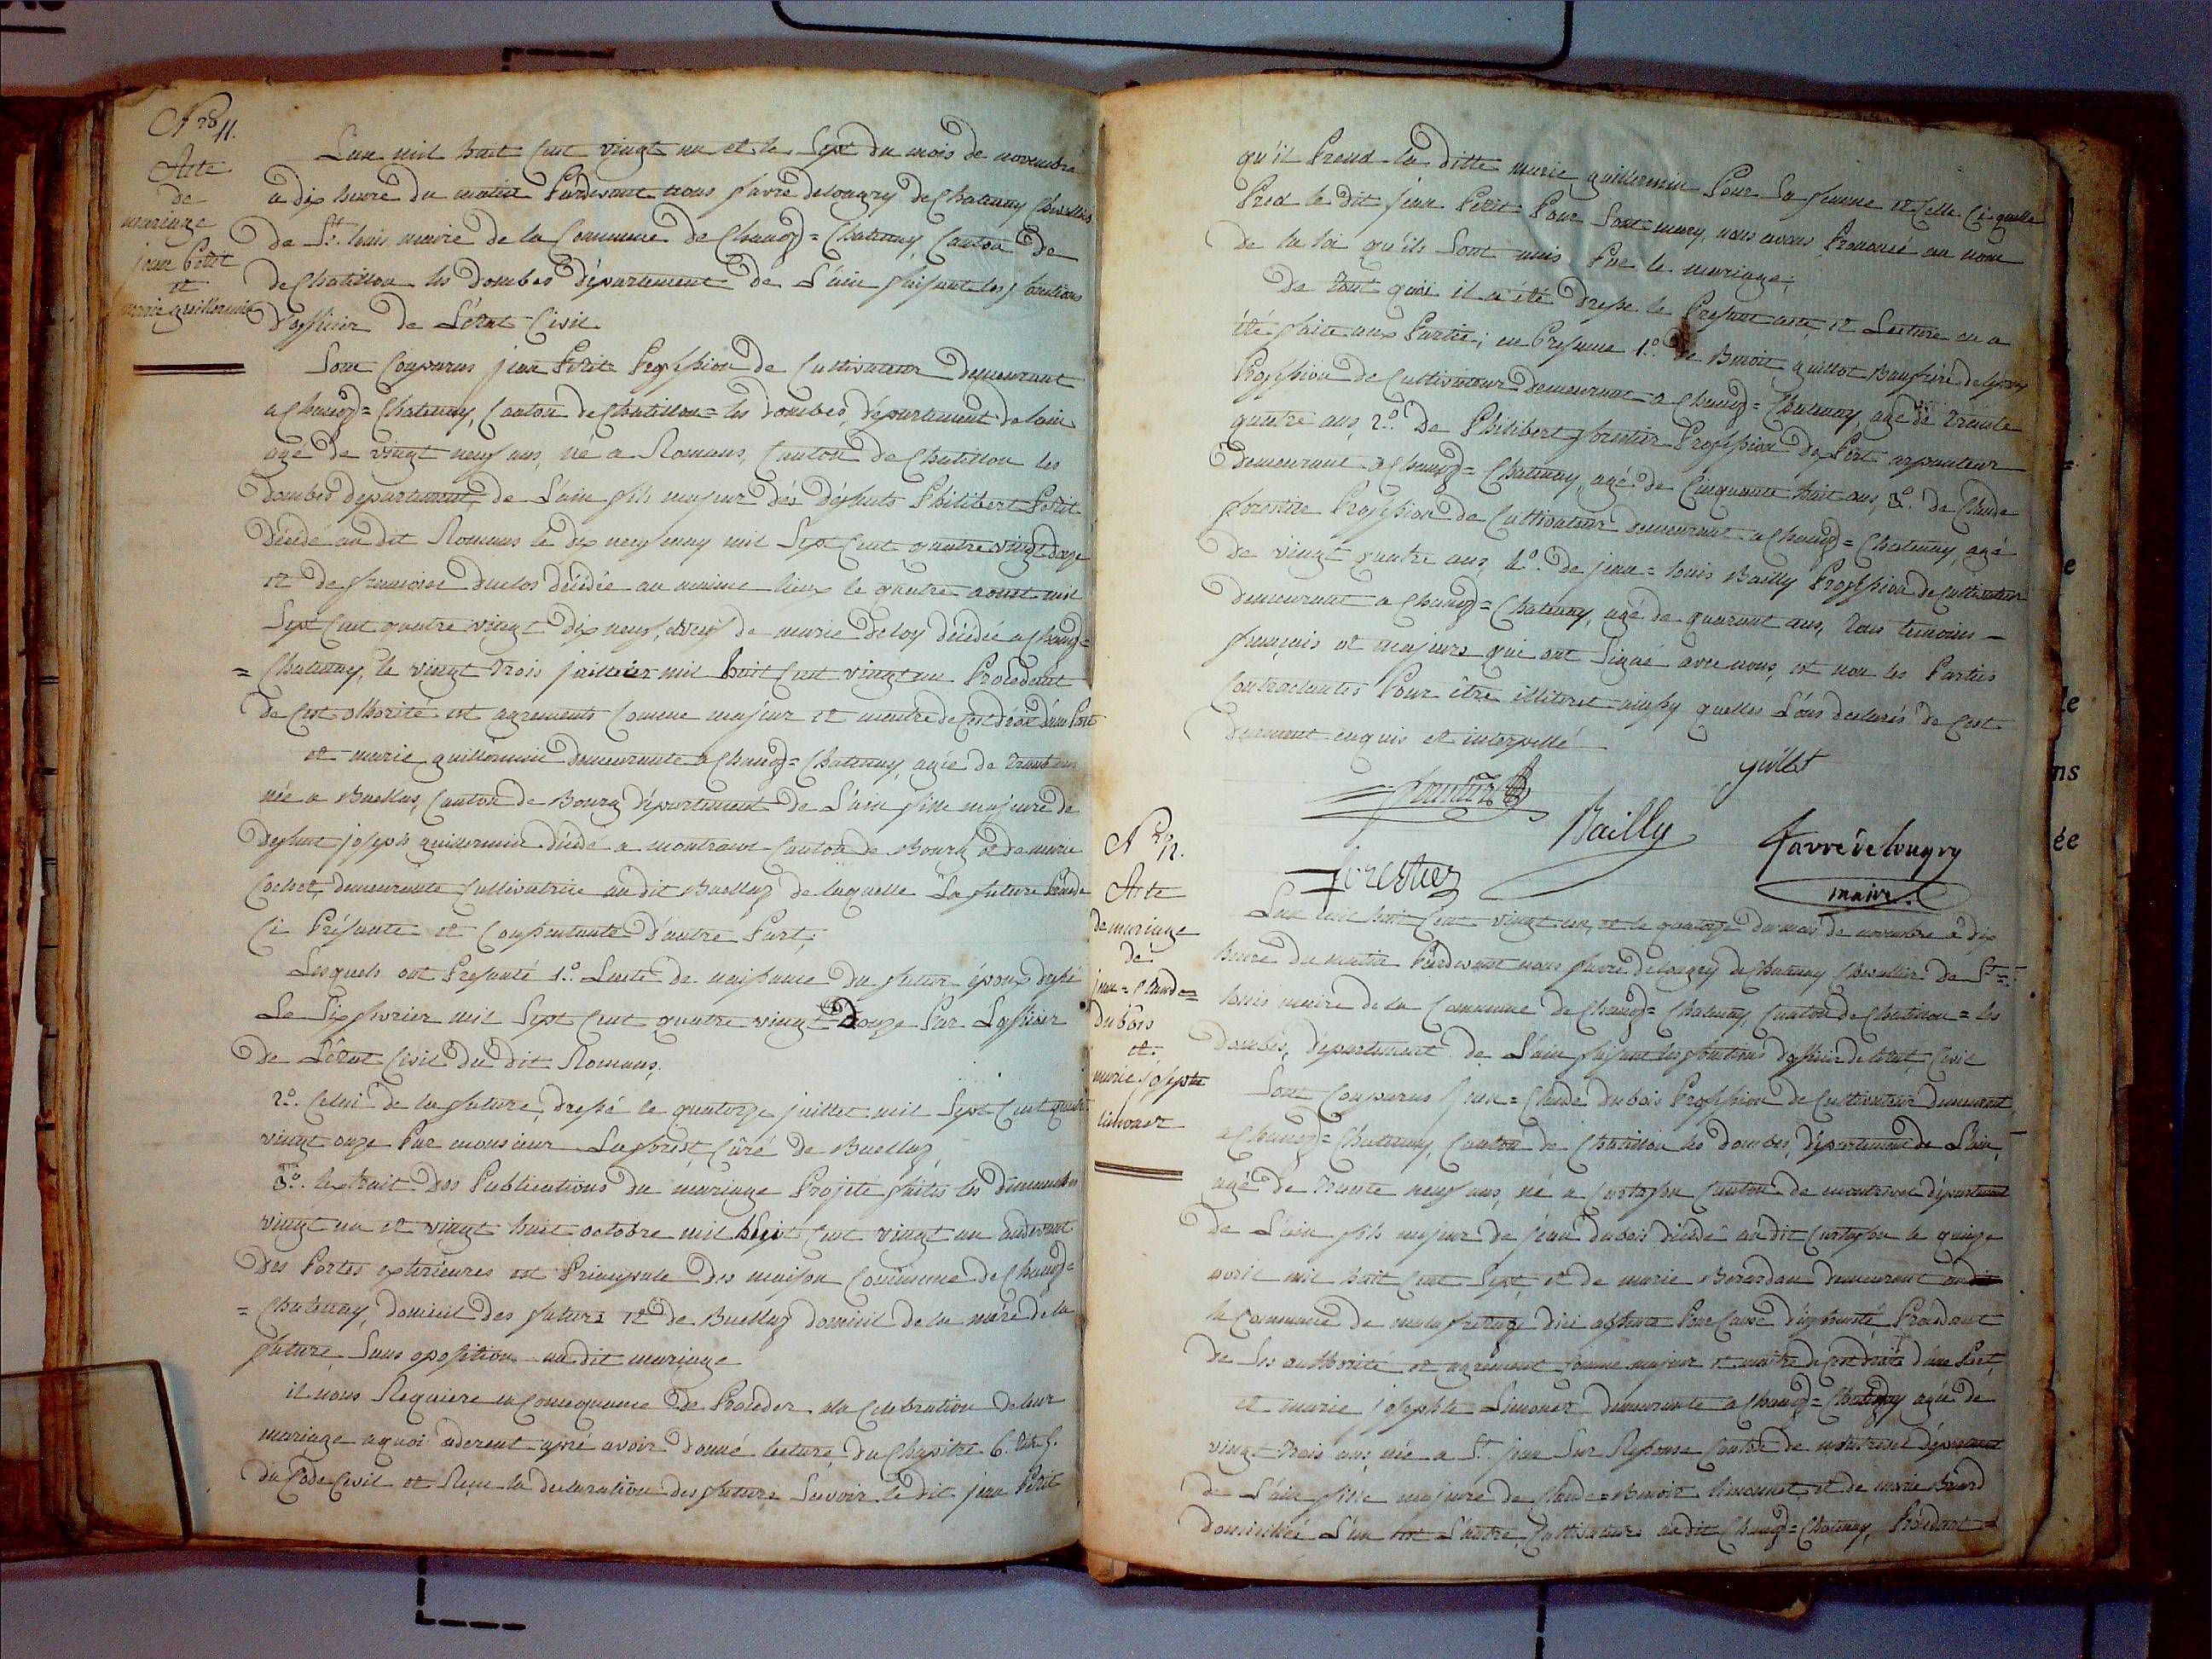 N.ro 11.
Acte
de
mariage
jean Petit
et
marie guillermin
L'an mil huit Cent vingt un et le Sept du mois de novembre
a dix heure du matin Pardevant nous favre delongry de Chatenay Chevallier
de St. louis maire de la Commune de Chaneyz=Chatenay, Canton de
de Chatillon les dombes département de L'ain faisant les fonctions
d'officier de L'état Civil
Sont Comparus jean Petit Profession de Cultivateur demeurant
a Chaneyz=Chatenay, Canton de Chatillon=les dombes, département de lain
agé de vingt neuf ans, né a Romans, Canton de Chatillon les
dombes département de L'ain fils majeur des défunts Philibert Petit
décédé au dit Romans le dix neuf may mil Sept Cent quatre vingt
et de francoise duclos décédée au maime lieux le quatre aoust mil
Sept Cent quatre vingt dix neuf, veuf de marie deloy décédée a Chaneyz=
=Chatenay, le vingt trois mil huit Cent vingt un Procedant
de Cest othorité et agrements Comme majeur et maitre de Cest droit d'une Part
et marie guillermin demeurante a Chaneyz=Chatenay agée de trente ans
née a Buellas, Canton de Bourg département de L'ain fille majeure de
deffunt joseph guillermin décédé a montracol Canton de Bourg et de marie
Cochet, demeurante Cultivatrice au dit Buellas de laquelle La future
Ci Présente et Consentante d'autre Part;
Lesquels ont Presenté 1.o Lacte de naissance du futur époux dressé
Le Six fevrier mil Sept Cent quatre vingt Douze Par L'officier
de L'état Civil du dit Romans;
2.o Celui de la future, dressé le quatorze juillet mil Sept Cent quatre
vingt onze Par monsieur Laforest, Curé de Buellas,
3.o lextrait des Publications du mariage Projeté faites les dimanches
vingt un et vingt huit octobre mil Cent vingt un audevant
des Portes exterieures et Principale des maison Commune de Chaneyz=
=Chatenay, domicil des futurs et de Buellas domicil de la mère de la
future, Sans oposition au dit mariage
il nous Requiere en Consequance de Proceder ala Celebration de leur
mariage aquoi aderent apré avoir donné lecture, du Chapitre 6. titre 5.
du Code Civil et Reçu la declaration des futurs Savoir le dit jean Petit
qu'il Prend la ditte marie guillermin Pour Sa femme et Celle Ci quelle
Prend le dit jean Petit Pour Sont mary, nous avons Prononcé au nom
de la loi qu'ils Sont unis Par le mariage;
De tout quoi il a été dressé le Present acte, et Lecture en a
été faite aux Partie; en Presence 1.o de Benoit guillot Beaufrère de
Profession de Cultivateur demeurant a Chaneyz=Chatenay, agé de trente
quatre ans, 2.o De Philibert forestier Profession de arpenteur
demeurant a Chaneyz=Chatenay, agé de Cinquante huit ans, 3.o de Claude
forestier Profession de Cultivateur demeurant a Chaneyz=Chatenay, agé
de vingt quatre ans, 4.o de jean=louis Bailly Profession de Cultivateur
demeurant a Chaneyz=Chatenay, agé de quarant ans, tous temoins
français et majeurs qui ont Signé avec nous, et non les Parties
Contractantes Pour être illiteret ainssy quelles L'ons declarés de Cest
Duement enquis et interpellé
guillot
Bailly
favre delongry
forestier
maire
N.ro 12.
Acte
de mariage
de
jean=Claude=
Dubois
et
marie josephte
Limonet
L'an mil huit Cent vingt un, et le quatorze du mois de novembre à dix
heure du matin Pardevant nous favre delongry de Chatenay, Chevallier de St.=
louis maire de la Commune de Chaneyz=Chatenay, Canton de Chatillon=les
dombes, département de L'ain faisant les fonctions d'officier de letat Civil
Sont Comparus jean=Claude dubois Profession de Cultivateur demeurant
a Chaneyz=Chatenay, Canton de Chatillon les dombes, département de L'ain,
agé de trente neuf ans, né a Curtafon Canton de montrevel département
de L'ain fils majeur de jean dubois décédé au dit Curtafon le quinze
avril mil huit Cent Sept, et de marie Berardan demeurant
la Commune de malafretaz dici absente Par Cause d'infirmité, Procedant
de Ses authorité et agrément Comme majeur et maitre de Cest droit d'une Part,
et marie josephte Limonet demeurante a Chaneyz=Chatenay agée de
vingt trois ans, née a St. jean Sur Reyssouse Canton de montrevel département
de L'ain fille majeure de Claude=Benoit Limonet, et de marie
domiciliés L'un et L'autre, Cultivateur audit Chaneyz=Chatenay, Procedant=